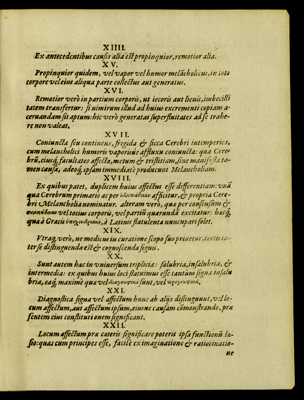 XIIII.
Ex antecedentibus causis alia est propinquior, remotior alia.
XV.
Propinquior quidem, vel vapor vel humor melācholicus, in toto
corpore vel eius aliqua parte collectus aut generatus.
XVI.
Remotior verò in partium corporis, ut iecoris aut lienis, imbecilli
tatem transfertur: si nimirum illud ad huius excrementi copiam a-
ceruandam sit aptum: hic verò generatas superfluitates ad se trahe-
re non valeat.
XVII.
Coniuncta seu continens, frigida & sicca Cerebri intemperies,
cum melancholici humoris vaporisue affluxu coniuncta: quæ Cere-
brū, eiusq́; facultates affecta, metum & tristitiam, siue manifesta ta-
men causa, adeoq́; ipsam immediatè producunt Melancholiam.
XVIII.
Ex quibus patet, duplicem huius affectus esse differentiam: vnā
qua Cerebrum primario ac per afficitur, & propria Cere-
bri Melancholia nominatur. alteram verò, quæ per consensum &
vel totius corporis, vel partiū quarundā excitatur: huicq́;
quæ à Græcis à Latinis flatulenta nuncupari solet.
XIX.
Vtraq́; verò, ne medicus in curatione scopo suo priuetur,
tersè distinguenda est & cognoscenda signis.
XX.
Sunt autem hæc in vniuersum triplicia: salubria, insalubria, &
intermedia: ex quibus huius loci statuimus esse tantùm signa insalu
bria, eaq́; maximè quæ vel sunt, vel
XXI.
Diagnostica signa vel affectum hunc ab alijs distinguunt, vel lo-
cum affectum, aut affectum ipsum, eiusue causam demonstrando, præ
sentem eius constitutionem significant.
XXII.
Locum affectum præ cæteris significare poterit ipsa functionū læ-
sio: quas cum principes esse, facile ex imaginatione & ratiocinatio-
ne